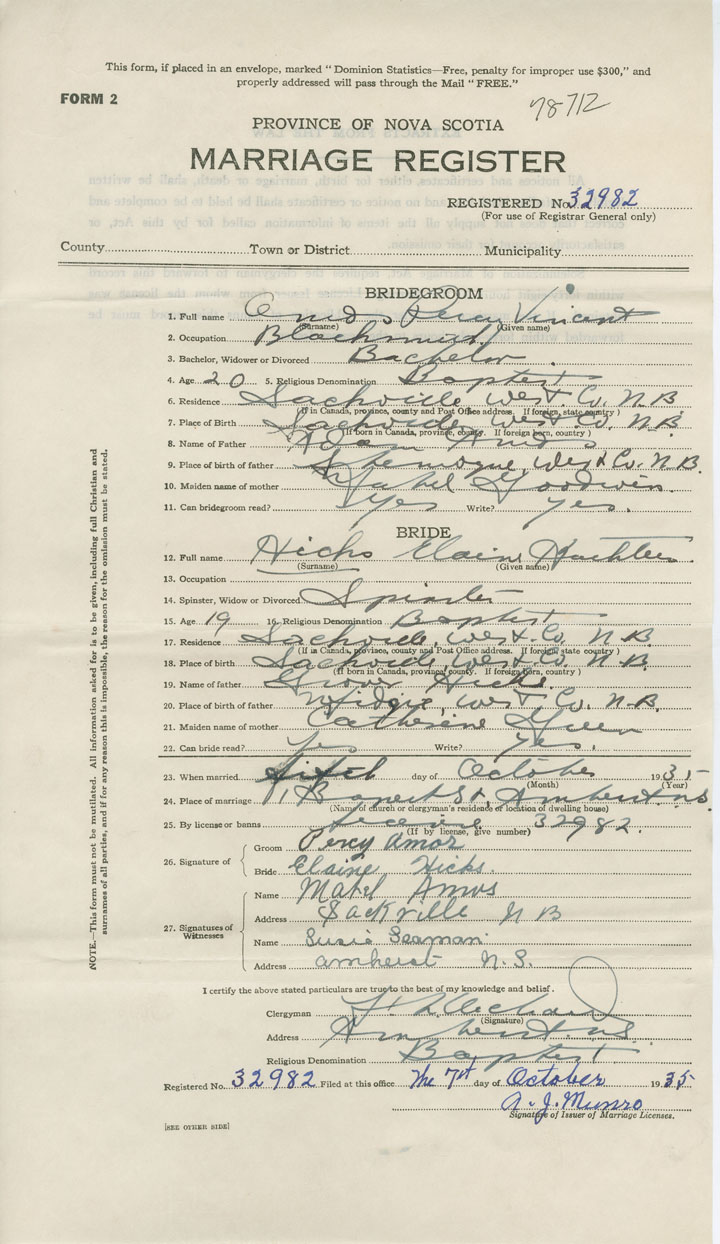 This form, if placed in an envelope, marked "Dominion Statistics—Free, penalty for improper use $300," and
properly addressed will pass through the Mail "FREE."
FORM 2
78712
PROVINCE OF NOVA SCOTIA
MARRIAGE REGISTER
REGISTERED No. 32982
(For use of Registrar General only)
County Town or District Municipality
BRIDEGROOM
1. Full name Amos Percy Vincent
(Surname) (Given name)
2. Occupation Blacksmith
3. Bachelor, Widower or Divorced Bachelor
4. Age 20 5. Religious Denomination Baptist
6. Residence Sackville West Co. N.B
(If in Canada, province, county and Post Office address. If foreign, state country)
7. Place of Birth Sackville, West Co. N.B.
(If born in Canada, province, county. If foreign born, country)
8. Name of Father Amos
9. Place of father Shemogue, West Co. N.B.
10. Maiden name of mother Mabel Goodwin
11. Can bridegroom read? Yes Write? yes.
BRIDE
12. Full name Hicks Elaine Kathleen
(Surname) (Given name)
13. Occupation
14. Spinster, Widow or Divorced Spinster
15. Age 19 16. Religious Denomination Baptist
17. Residence Sackville, West. Co. N.B.
(If in Canada, province, county and Post Office address. If foreign state country)
18. Place of birth Sackville, West. Co. N.B.
(If born in Canada, province, county. If foreign born, country)
19. Name of father Grover Hicks
20. Place of birth of father Midgic, West Co. N.B.
21. Maiden name of mother Catherine
22. Can bride read? yes Write? yes.
23. When married fifth day of October 1935
(Month) (Year)
24. Place of marriage St, Amherst N.S.
(Name of church or clergyman's residence or location of dwelling house)
25. By license or banns license 32982.
(If by license, give number)
26. Signature of
Groom Percy Amos
Bride Elaine Hicks.
27. Signatures of
Witnesses
Name Mabel Amos
Address Sackville N B
Name Susie Seaman
Address amherst N.S.
I certify the above stated particulars are true to the best of my knowledge and belief.
Clergyman
(Signature)
Address Amherst N.S.
Religious Denomination Baptist
Registered No. 32982 Filed at this office The 7th day of October 1935
A. J. Munro
Signature of Issuer of Marriage Licenses.
[SEE OTHER SIDE]
NOTE.—This form must not be mutilated. All information asked for is to be given, including full Christian and
surnames of all parties, and if for any reason this is impossible, the reason for the omission must be stated.